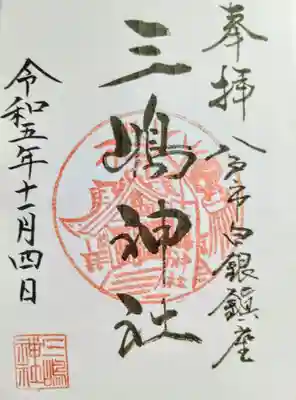 奉拝
八戸市白銀鎮座
三嶋神社
令和五年十一月四日
三嶋
神社